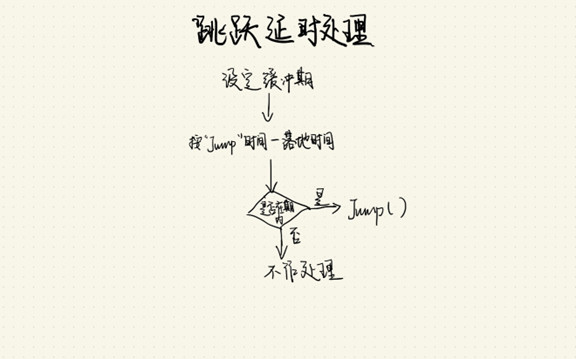 跳跃延时处理
设定缓冲期
按"Jump"时间-落地时间
是否在期
内
是
Jump()
否
不作处理